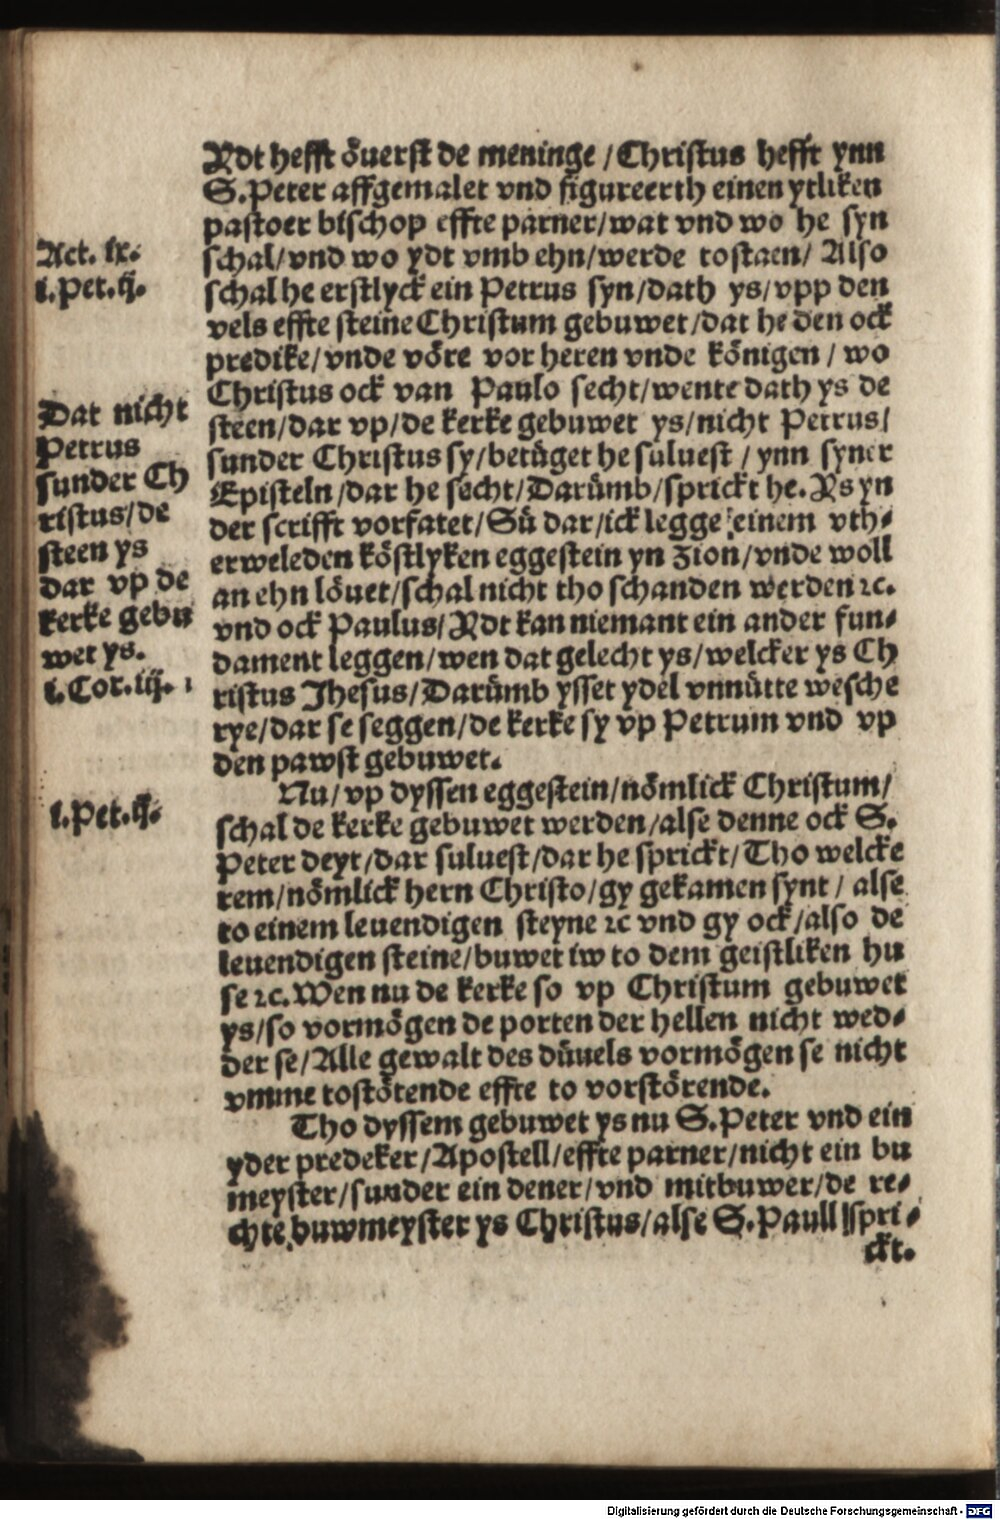 Ydt hefft öuerst de meninge / Christus hefft ynn
S. Peter affgemalet vnd figureerth einen ytliken
pastoer bischop effte parner / wat vnd wo he syn
schal / vnd wo ydt vmb ehn / werde tostaen / Also
schal he erstlyck ein Petrus syn / dath ys / vpp den
vels effte steine Christum gebuwet / dat he den ock
predike / vnde vöre vor heren vnde königen / wo
Christus ock van Paulo secht / wente dath ys de
steen / dar vp / de kerke gebuwet ys / nicht Petrus /
sunder Christus sy / betüget he suluest / ynn syner
Episteln / dar he secht / Darümb / sprickt he. Ys yn
der scrifft vorfatet / Sü dar / ick legge einem vth-
erweleden köstlyken eggestein yn Zion / vnde woll
an ehn löuet / schal nicht tho schanden werden ꝛc.
vnd ock Paulus / Ydt kan niemant ein ander fun-
dament leggen / wen dat gelecht ys / welcker ys Ch
ristus Jhesus / Darümb ysset ydel vnnütte wesche
rye / dar se seggen / de kerke sy vp Petrum vnd vp
den pawst gebuwet.
Nu / vp dyssen eggestein / nömlick Christum /
schal de kerke gebuwet werden / alse denne ock S.
Peter deyt / dar suluest / dar he sprickt / Tho welcke
rem / nömlick hern Christo / gy gekamen synt / alse
to einem leuendigen steyne ꝛc vnd gy ock / also de
leuendigen steine / buwet iw to dem geistliken hu
se ꝛc. Wen nu de kerke so vp Christum gebuwet
ys / so vormögen de porten der hellen nicht wed-
der se / Alle gewalt des düuels vormögen se nicht
vmme tostötende effte to vorstörende.
Tho dyssem gebuwet ys nu S. Peter vnd ein
yder predeker / Apostell / effte parner / nicht ein bu
meyster / sunder ein dener / vnd mitbuwer / de re-
chte buwmeyster ys Christus / alse S. Paull spri-
ckt.
Act. ix.
i. Pet. ij.
Dat nicht
Petrus
sunder Ch
ristus / de
steen ys
dar vp de
kerke gebu
wet ys.
i. Cor. iij.
i. Pet. ij.
Digitalisierung gefördert durch die Deutsche Forschungsgemeinschaft - DFG